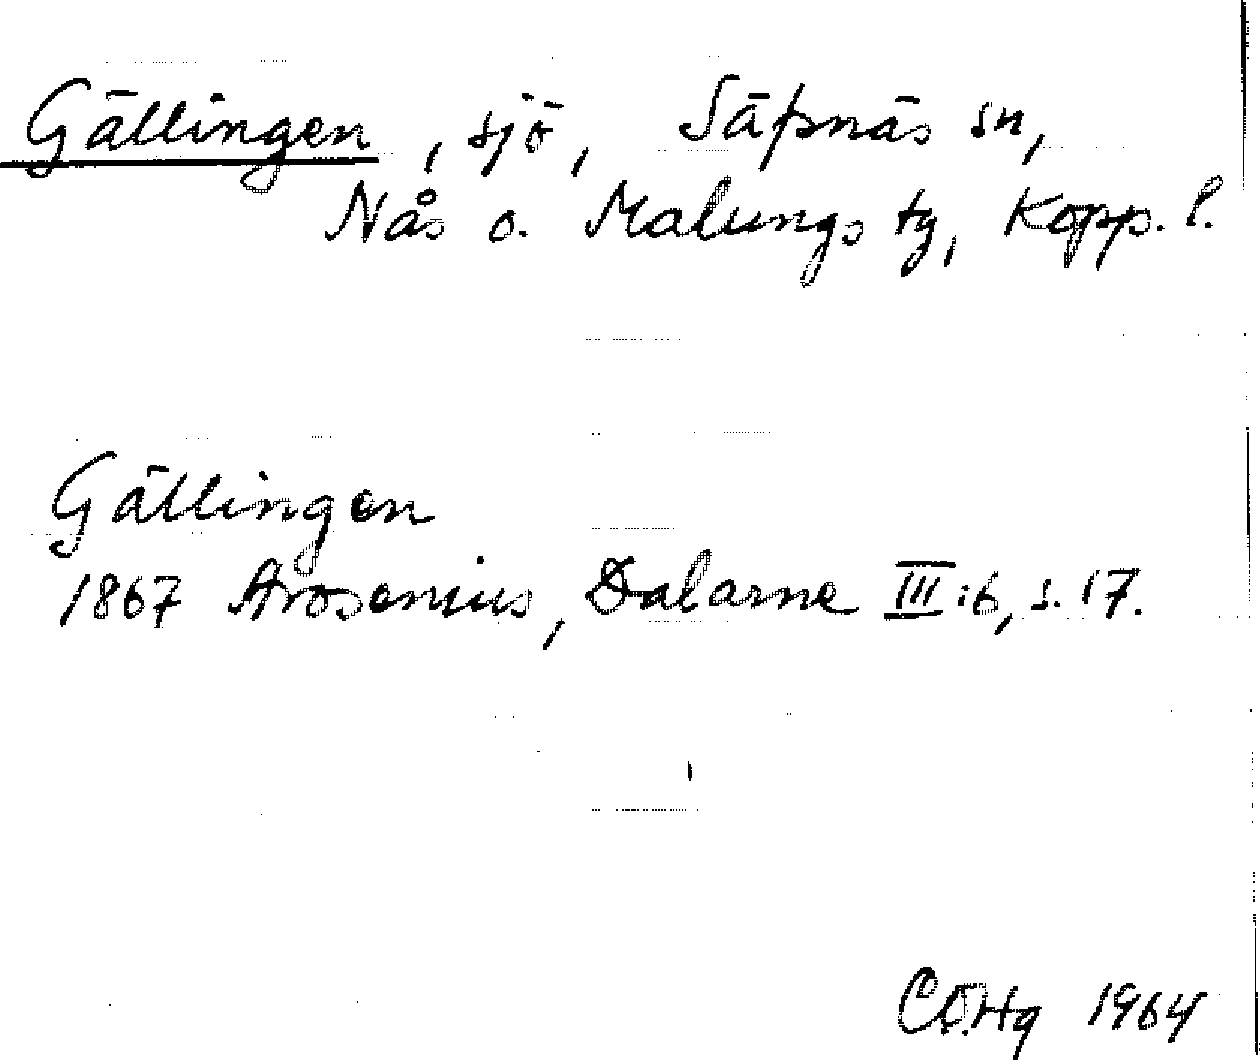 Gällingen, sjö, Säfsnäs sn,
Nås o. Malungs tg, Kopp. l.
Gällingen
1867 Arosenius, Dalarne III:6, s. 17.
1964